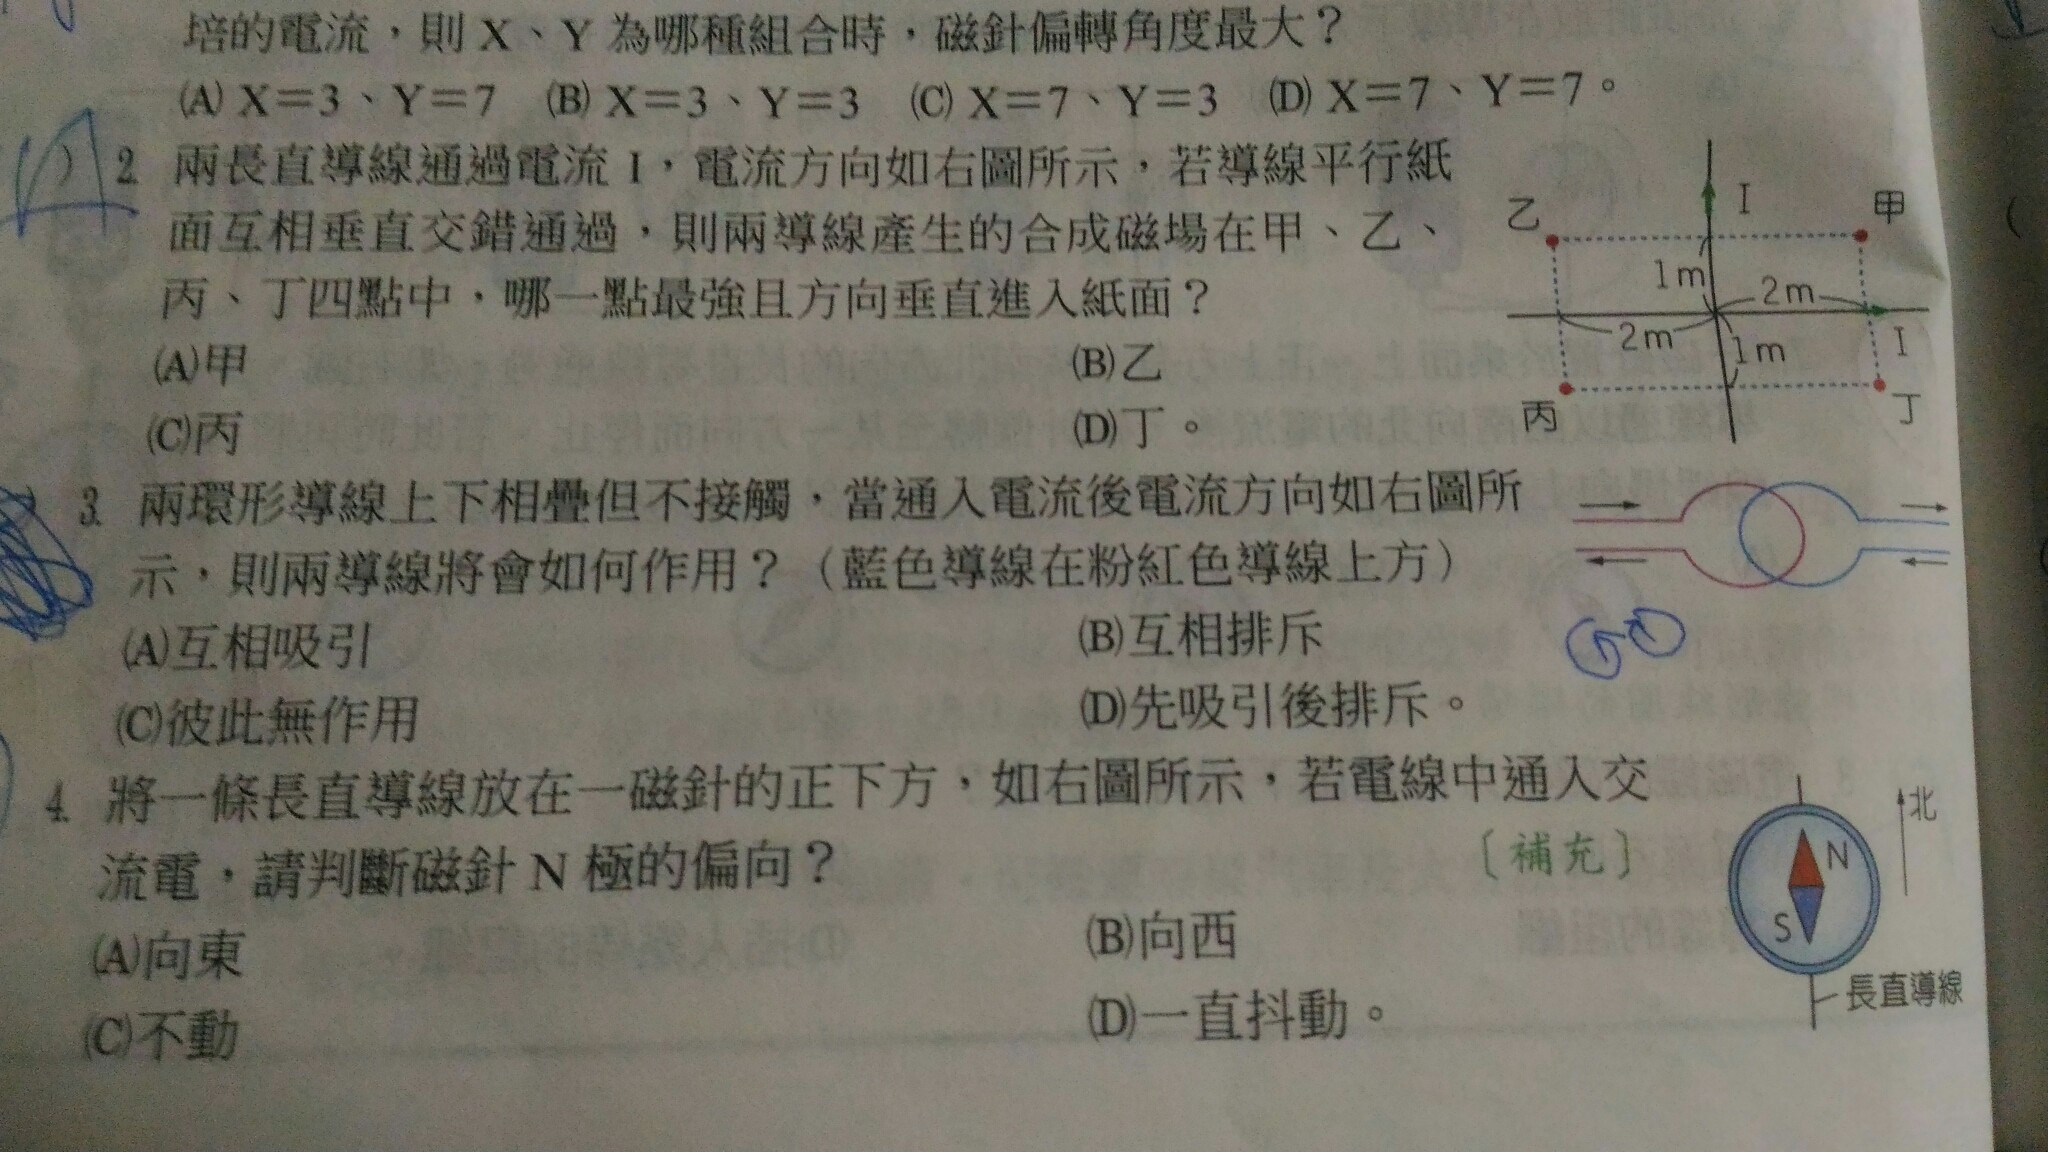 培的電流，則 X、Y 為哪種組合時，磁針偏轉角度最大？
(A) X＝3、Y＝7 (B) X＝3、Y＝3 (C) X＝7、Y＝3 (D) X＝7、Y＝7。
2. 兩長直導線通過電流 I，電流方向如右圖所示，若導線平行紙
面互相垂直交錯通過，則兩導線產生的合成磁場在甲、乙、
丙、丁四點中，哪一點最強且方向垂直進入紙面？
(A)甲 (B)乙
(C)丙 (D)丁。
乙 I 甲
1m 2m
2m 1m I
丙 丁
3. 兩環形導線上下相疊但不接觸，當通入電流後電流方向如右圖所
示，則兩導線將會如何作用？（藍色導線在粉紅色導線上方）
(A)互相吸引 (B)互相排斥
(C)彼此無作用 (D)先吸引後排斥。
4. 將一條長直導線放在一磁針的正下方，如右圖所示，若電線中通入交
流電，請判斷磁針 N 極的偏向？ 〔補充〕
(A)向東 (B)向西
(C)不動 (D)一直抖動。
北
N
S
長直導線